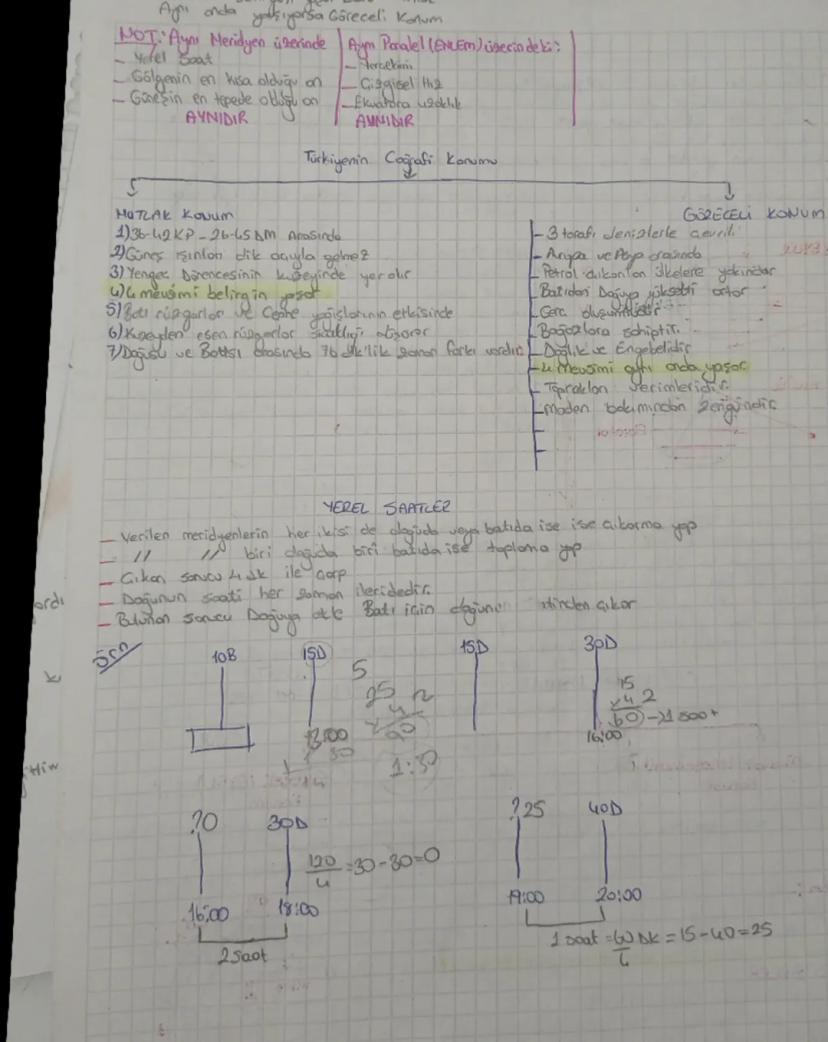 Aynı anda yaşıyorsa Göreceli Konum
NOT: Aynı Meridyen üzerinde
- Yerel Saat
- Gölgenin en kısa olduğu an
- Güneşin en tepede olduğu an
AYNIDIR
Aynı Paralel (ENLEM) üzerindeki:
- Yerçekimi
- Çizgisel Hız
- Ekvatora uzaklık
AYNIDIR
Türkiyenin Coğrafi Konumu
MUTLAK Konum
1) 36-42 KP - 26-45 DM Arasında
2) Güneş ışınları dik açıyla gelmez
3) Yengeç Dönencesinin kuzeyinde yer alır
4) 4 mevsimi belirgin yaşar
5) Batı rüzgarları ve Cephe yağışlarının etkisinde
6) Kuzeyden esen rüzgarlar sıcaklığı
7) Doğusu ve Batısı arasında 76 dk'lik zaman farkı vardır
GÖRECELİ KONUM
- 3 tarafı denizlerle çevrili
- Avrupa ve Asya arasında
- Petrol çıkartan ülkelere yakındır
- Batıdan Doğuya yükselti artar
- Boğazlara sahiptir.
- Dağlık ve Engebelidir
- 4 mevsimi aynı anda yaşar
- Toprakları verimlidir.
- maden bakımından zengindir
YEREL SAATLER
- Verilen meridyenlerin her ikisi de doğuda veya batıda ise ise çıkarma yap
- // // biri doğuda biri batıda ise toplama yap
- Çıkan sonucu 4 dk ile çarp
- Doğunun saati her zaman ileridedir.
- Bulunan sonucu Doğuya ekle Batı için çıkar
Örn
10B 15D 15D 30D
5
25
4
1:30
15
x 4
60 -> 1 saat
16:00
?0 30D
120/4 = 30 - 30 = 0
16:00 18:00
2 Saat
? 25 40D
19:00 20:00
1 saat = 60 DK = 15 - 40 = 25